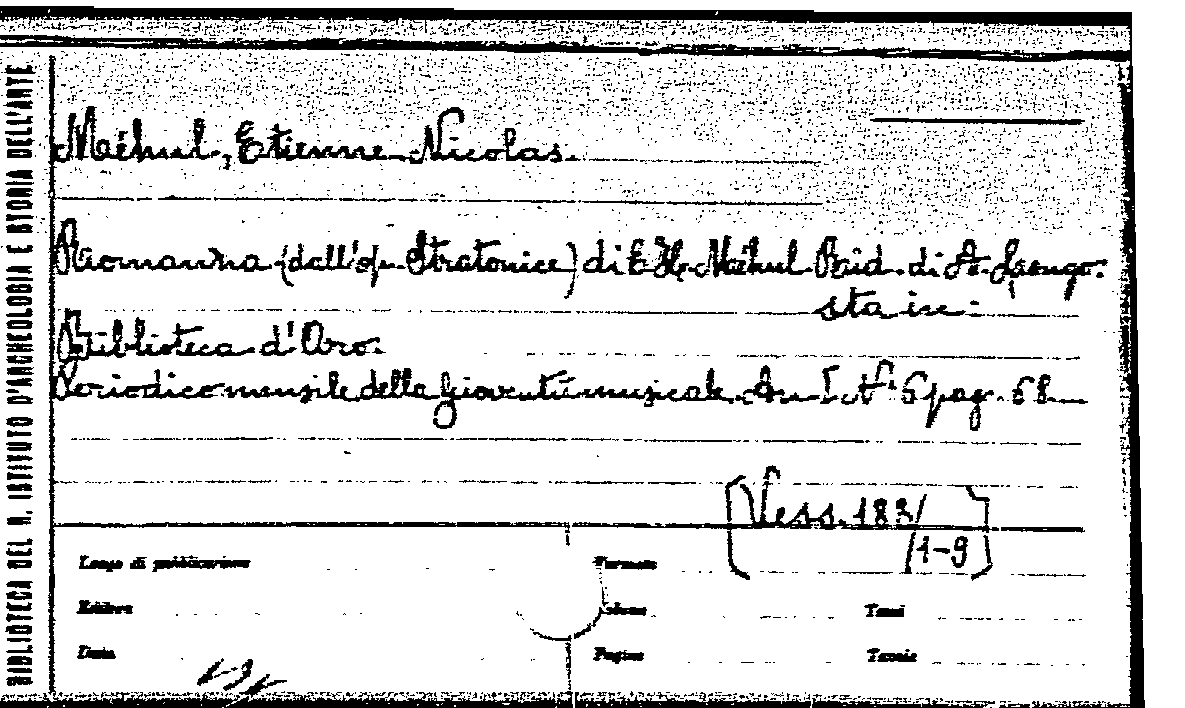 Méhul, Etienne Nicolas.
Romanza (dall'op. Stratonice) di E. H. Méhul. Rid. di A. Longo.
sta in:
Biblioteca d'Oro.
Periodico mensile della gioventù musicale. An. I. N° 6 pag. 68
[Vess. 183/
/1-9]
Luogo di pubblicazione
Formato
Editore
Volume
Tomi
Data
Pagine
Tavole
BIBLIOTECA DEL R. ISTITUTO D'ARCHEOLOGIA E STORIA DELL'ARTE